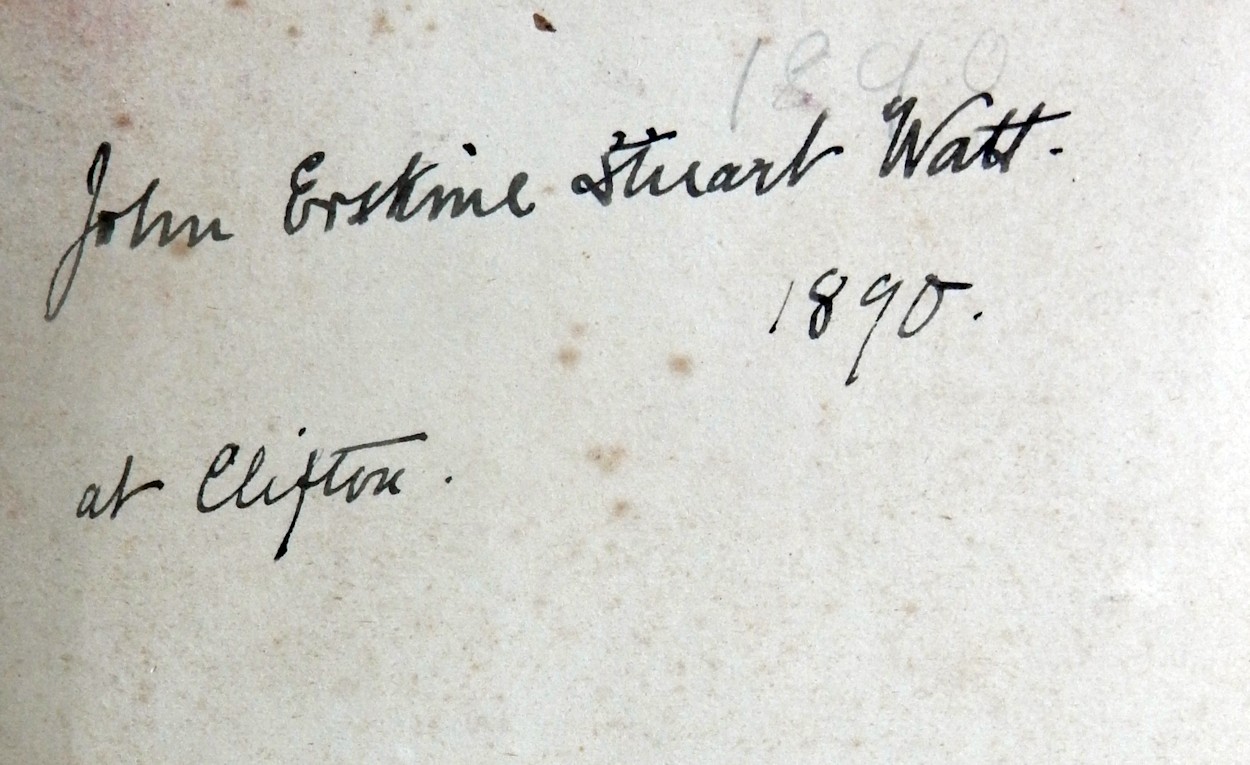 1890
John Erskine Stuart Watt.
1890.
at Clifton.